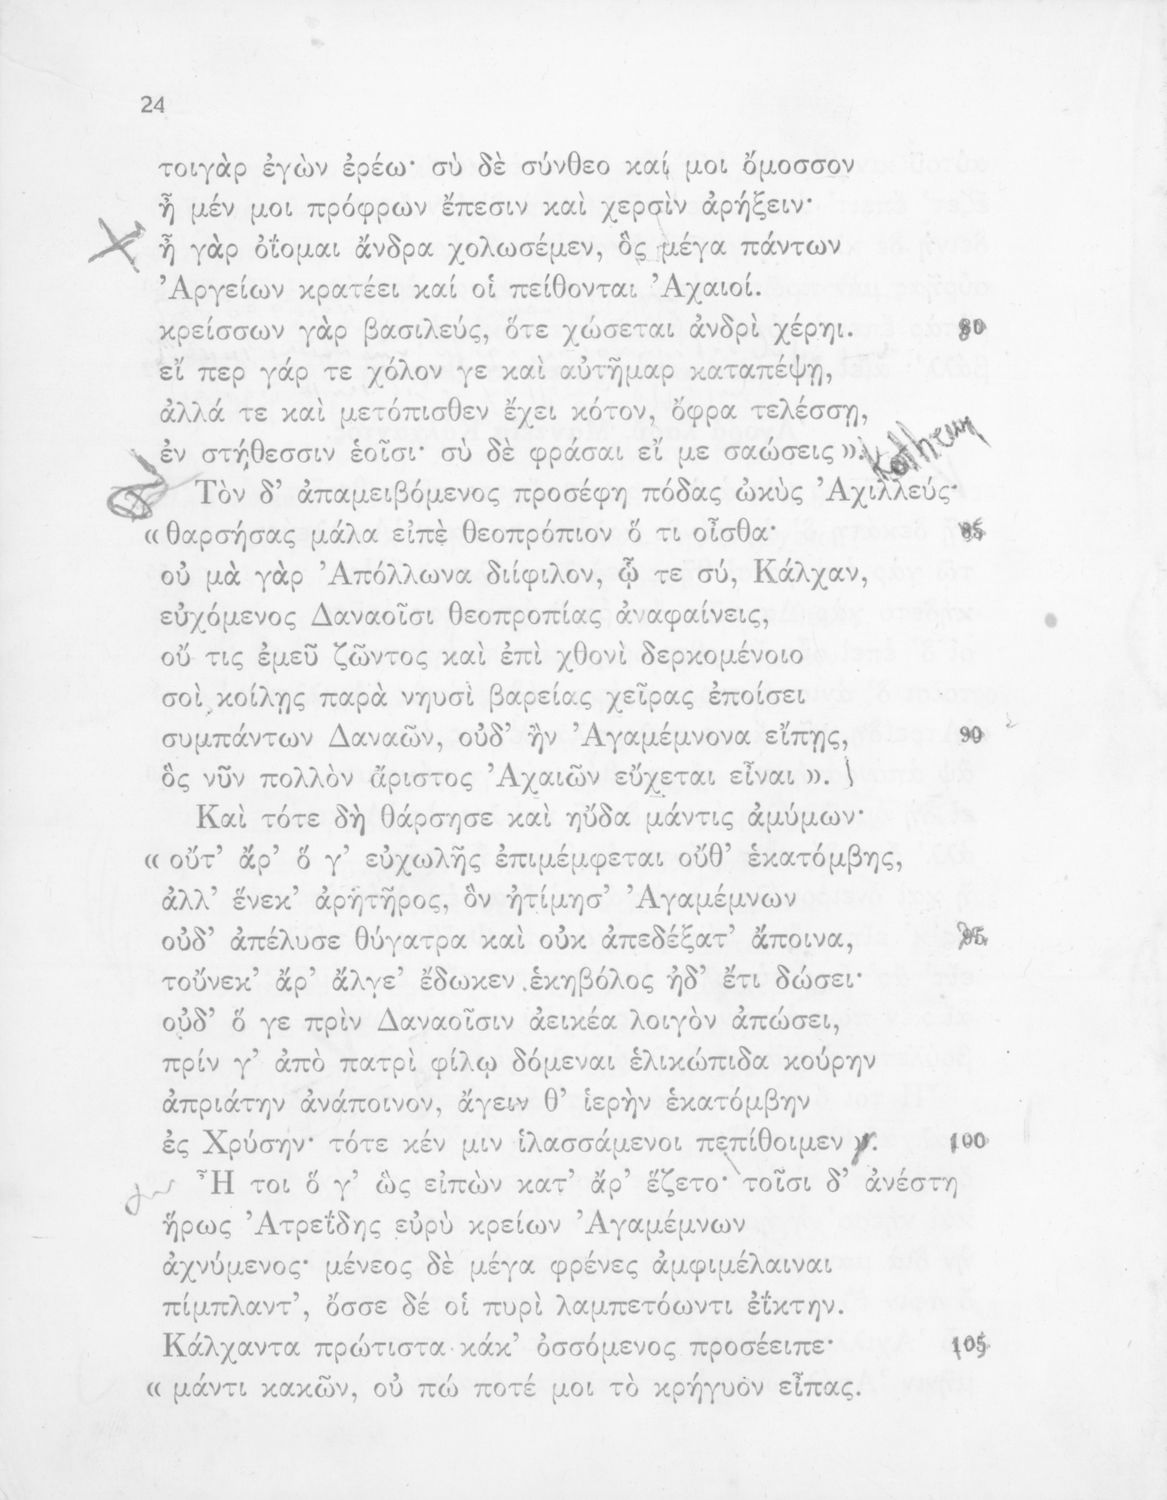 24
τοιγὰρ ἐγὼν ἐρέω· σὺ δὲ σύνθεο καί μοι ὄμοσσον
ἦ μέν μοι πρόφρων ἔπεσιν καὶ χερσὶν ἀρήξειν·
ἦ γὰρ ὀΐομαι ἄνδρα χολωσέμεν, ὃς μέγα πάντων
Ἀργείων κρατέει καί οἱ πείθονται Ἀχαιοί.
κρείσσων γὰρ βασιλεύς, ὅτε χώσεται ἀνδρὶ χέρηι. 80
εἴ περ γάρ τε χόλον γε καὶ αὐτῆμαρ καταπέψῃ,
ἀλλά τε καὶ μετόπισθεν ἔχει κότον, ὄφρα τελέσσῃ,
ἐν στήθεσσιν ἑοῖσι· σὺ δὲ φράσαι εἴ με σαώσεις ».
Τὸν δ’ ἀπαμειβόμενος προσέφη πόδας ὠκὺς Ἀχιλλεύς·
« θαρσήσας μάλα εἰπὲ θεοπρόπιον ὅ τι οἶσθα· 85
οὐ μὰ γὰρ Ἀπόλλωνα διίφιλον, ᾧ τε σύ, Κάλχαν,
εὐχόμενος Δαναοῖσι θεοπροπίας ἀναφαίνεις,
οὔ τις ἐμεῦ ζῶντος καὶ ἐπὶ χθονὶ δερκομένοιο
σοὶ κοίλῃς παρὰ νηυσὶ βαρείας χεῖρας ἐποίσει
συμπάντων Δαναῶν, οὐδ’ ἢν Ἀγαμέμνονα εἴπῃς, 90
ὃς νῦν πολλὸν ἄριστος Ἀχαιῶν εὔχεται εἶναι ».
Καὶ τότε δὴ θάρσησε καὶ ηὔδα μάντις ἀμύμων·
« οὔτ’ ἄρ’ ὅ γ’ εὐχωλῆς ἐπιμέμφεται οὔθ’ ἑκατόμβης,
ἀλλ’ ἕνεκ’ ἀρητῆρος, ὃν ἠτίμησ’ Ἀγαμέμνων
οὐδ’ ἀπέλυσε θύγατρα καὶ οὐκ ἀπεδέξατ’ ἄποινα, 95
τοὔνεκ’ ἄρ’ ἄλγε’ ἔδωκεν ἑκηβόλος ἠδ’ ἔτι δώσει·
οὐδ’ ὅ γε πρὶν Δαναοῖσιν ἀεικέα λοιγὸν ἀπώσει,
πρίν γ’ ἀπὸ πατρὶ φίλῳ δόμεναι ἑλικώπιδα κούρην
ἀπριάτην ἀνάποινον, ἄγειν θ’ ἱερὴν ἑκατόμβην
ἐς Χρύσην· τότε κέν μιν ἱλασσάμενοι πεπίθοιμεν ». 100
Ἦ τοι ὅ γ’ ὣς εἰπὼν κατ’ ἄρ’ ἕζετο· τοῖσι δ’ ἀνέστη
ἥρως Ἀτρεΐδης εὐρὺ κρείων Ἀγαμέμνων
ἀχνύμενος· μένεος δὲ μέγα φρένες ἀμφιμέλαιναι
πίμπλαντ’, ὄσσε δέ οἱ πυρὶ λαμπετόωντι ἐΐκτην.
Κάλχαντα πρώτιστα κάκ’ ὀσσόμενος προσέειπε· 105
« μάντι κακῶν, οὐ πώ ποτέ μοι τὸ κρήγυον εἶπας.